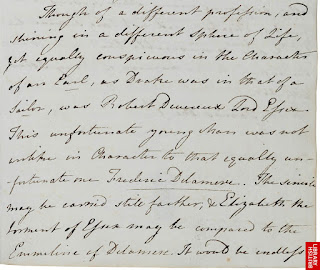 Though of a different profession, and
shining in a different Sphere of Life,
yet equally conspicuous in the Character
of an Earl, as Drake was in that of a
Sailor, was Robert Devereux Lord Essex.
This unfortunate young Man was not
unlike in Character to that equally un=
fortunate one Frederic Delamere. The simile
may be carried still farther, & Elizabeth the
torment of Essex may be compared to the
Emmeline of Delamere. It would be endless
BRITISH
LIBRARY